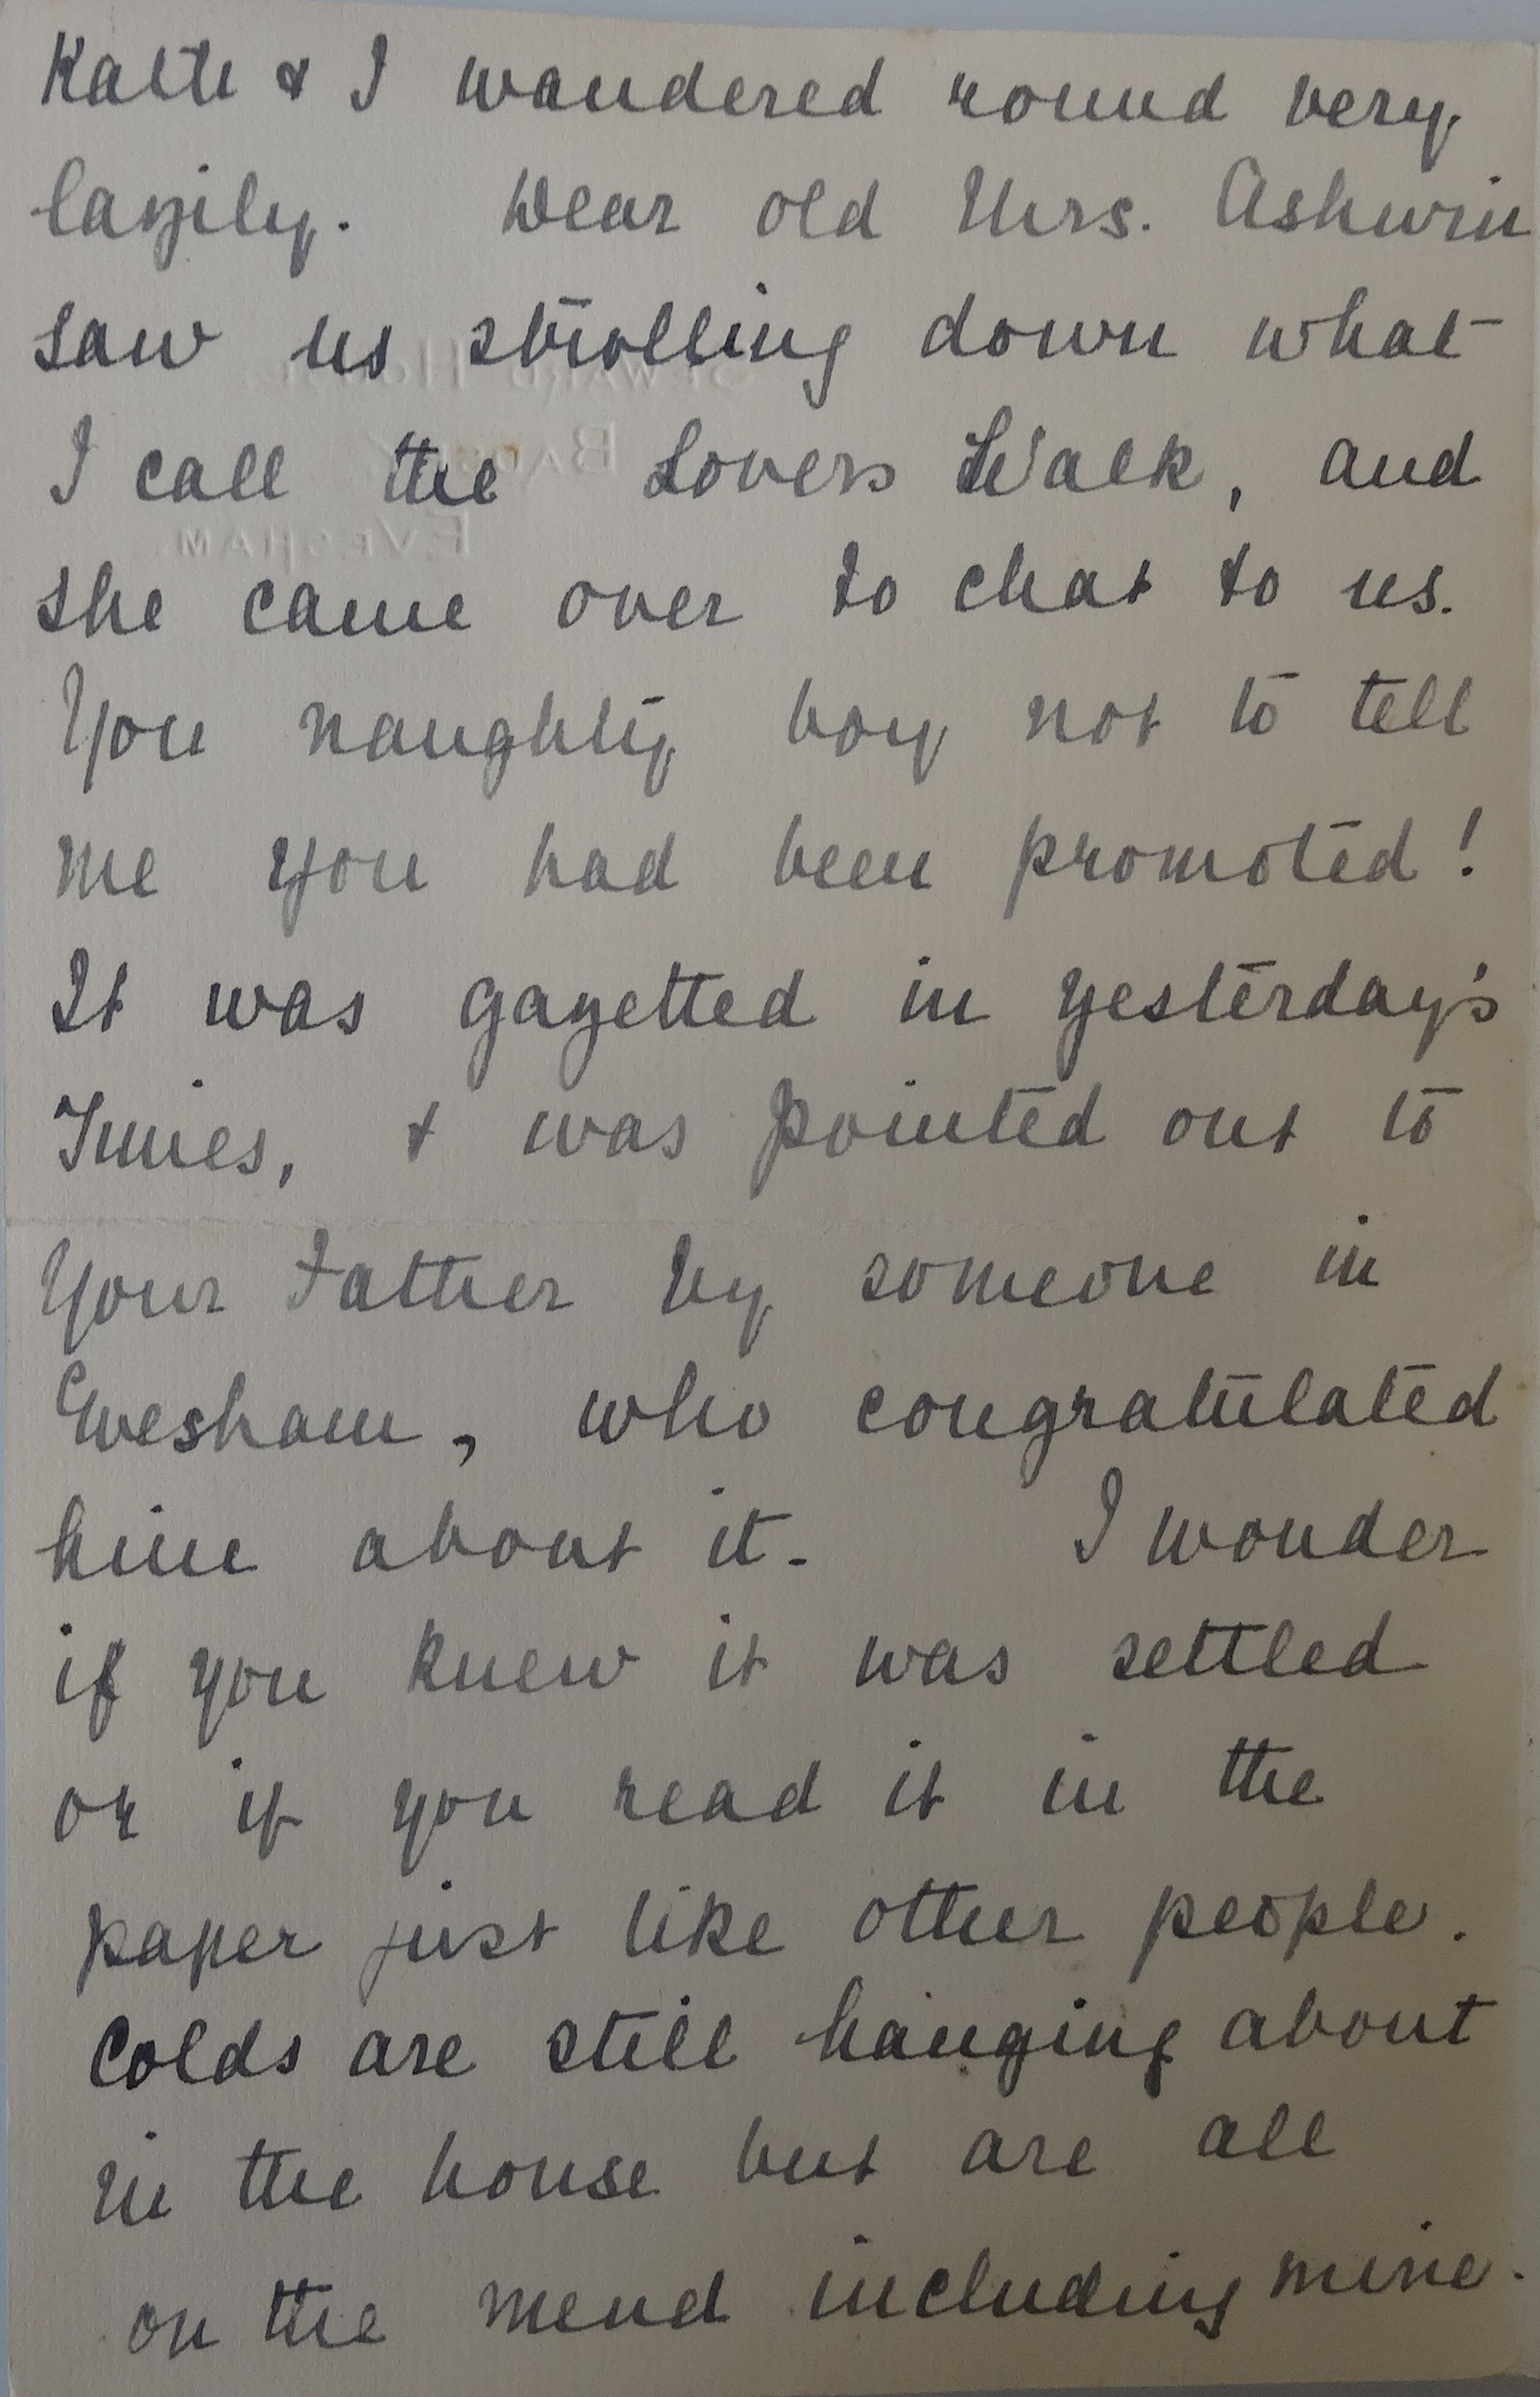 Kath & I wandered round very
lazily. Dear old Mrs. Ashwin
saw us strolling down what
I call the Lovers Walk, and
she came over to chat to us.
You naughty boy not to tell
me you had been promoted!
It was gazetted in yesterday's
Times, & was pointed out to
Your Father by someone in
Evesham, who congratulated
him about it. I wonder
if you knew it was settled
or if you read it in the
paper just like other people.
Colds are still hanging about
in the house but are all
on the mend including mine.
EVESHAM